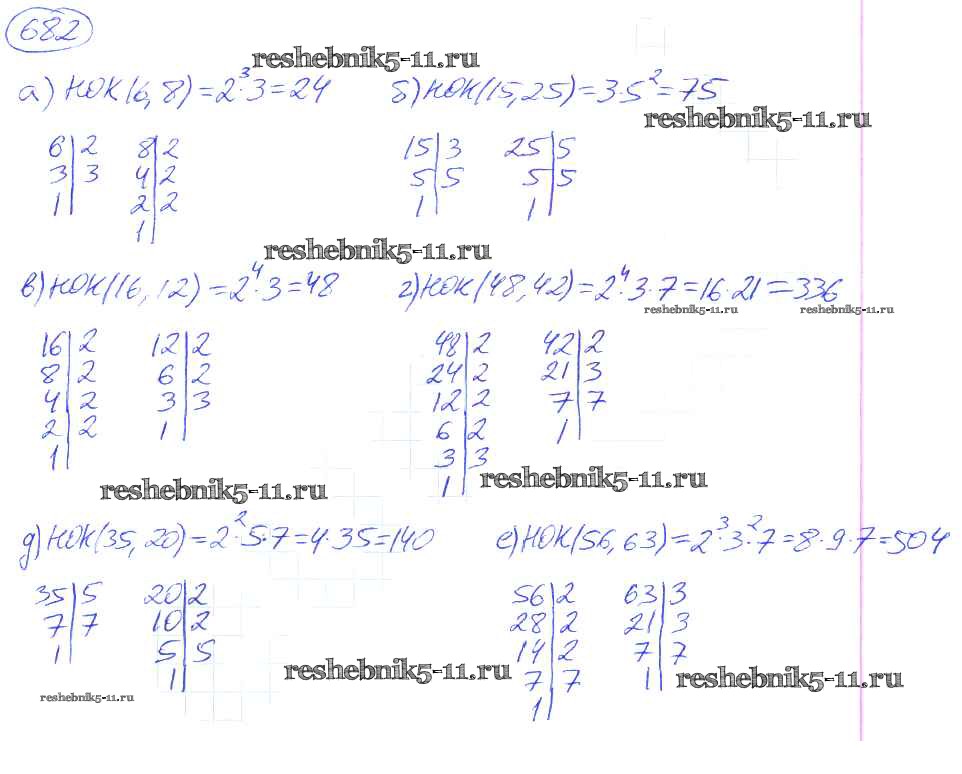 682
reshebnik5-11.ru
а) НОК(6,8)=2³·3=24 б) НОК(15,25)=3·5²=75
reshebnik5-11.ru
6|2 8|2 15|3 25|5
3|3 4|2 5|5 5|5
1| 2|2 1| 1|
1|
reshebnik5-11.ru
в) НОК(16,12)=2⁴·3=48 г) НОК(48,42)=2⁴·3·7=16·21=336
reshebnik5-11.ru reshebnik5-11.ru
16|2 12|2 48|2 42|2
8|2 6|2 24|2 21|3
4|2 3|3 12|2 7|7
2|2 1| 6|2 1|
1| 3|3
1|
reshebnik5-11.ru reshebnik5-11.ru
д) НОК(35,20)=2²·5·7=4·35=140 е) НОК(56,63)=2³·3²·7=8·9·7=504
35|5 20|2 56|2 63|3
7|7 10|2 28|2 21|3
1| 5|5 14|2 7|7
1| 7|7 1|
1|
reshebnik5-11.ru reshebnik5-11.ru
reshebnik5-11.ru